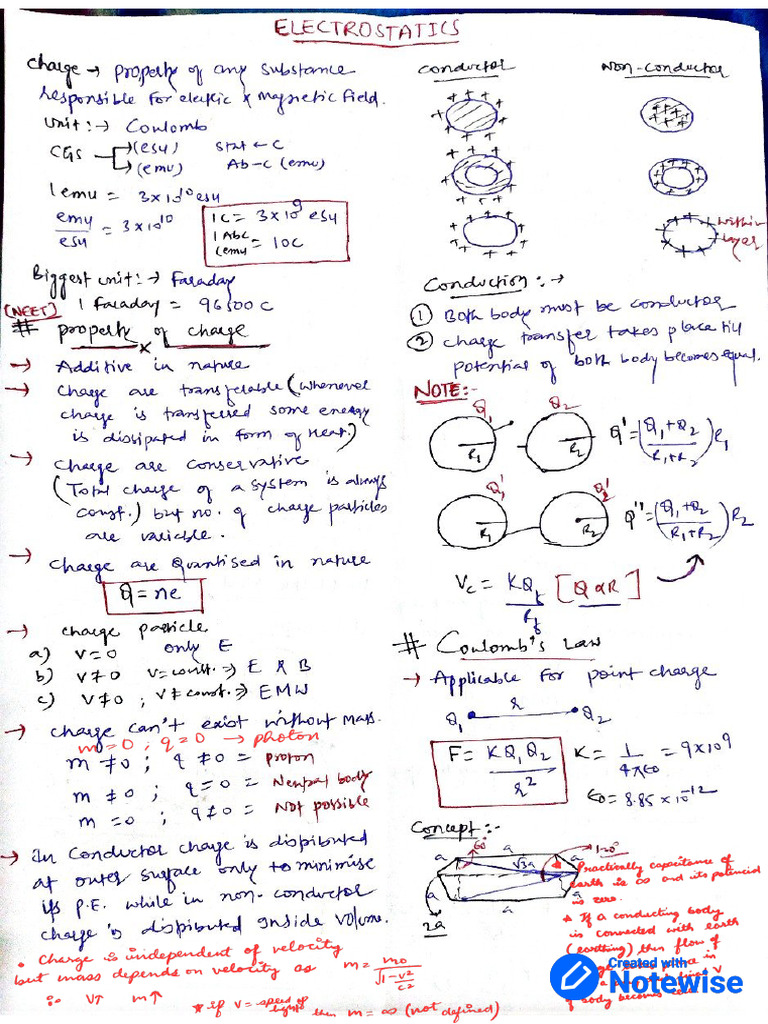 ELECTROSTATICS
Charge → property of any substance
responsible for electric & magnetic field.
Unit :→ Coulomb
CGS → (esu) Stat ← C
→ (emu) Ab-C (emu)
1 emu = 3 × 10^10 esu
emu/esu = 3 × 10^10
1C = 3 × 10^9 esu
1 Abc (emu = 10C
Biggest unit :→ Faraday
1 Faraday = 96500 C
[NEET]
# property of charge
→ Additive in nature
→ Charge are transferable (whenever
charge is transferred some energy
is dissipated in form of Heat.)
→ Charge are conservative
(Total charge of a system is always
const.) but no. of charge particles
are variable.
→ Charge are Quantised in nature
Q = ne
→ Charge particle
a) V=0 only E
b) V≠0 V=const. ⇒ E & B
c) V≠0 ; V≠const. ⇒ EMW
→ Charge can't exist without Mass.
m=0 ; q=0 → photon
m ≠0 ; q ≠0 = Proton
m ≠0 ; q=0 = Neutral body
m =0 ; q≠0 = Not possible
→ In Conductor charge is distributed
at outer surface only to minimise
its P.E. while in non-conductor
charge is distributed inside volume.
• Charge is independent of velocity
but mass depends on velocity as m = m0/√(1-v²/c²)
∴ V↑ m↑ * if V = speed of light then m = ∞ (not defined)
Conductor Non-Conductor
within
layer
Conduction :→
① Both body must be conductor
② Charge transfer takes place till
potential of both body becomes equal.
NOTE:-
Q1 Q2
R1 R2 Q' = (Q1+Q2/R1+R2)R1
Q1' Q2'
R1 R2 Q'' = (Q1+Q2/R1+R2)R2
Vc = KQ/R [Q∝R]
# Coulomb's Law
→ Applicable for point charge
r
Q1 Q2
F = KQ1Q2/r² K = 1/4π∈0 = 9×10^9
∈0 = 8.85 × 10^-12
Concept:-
60° 120°
a a a
√3a
a a
a
2a
Practically capacitance of
earth is ∞ and its potential
is zero.
* If a conducting body
is connected with earth
(earthing) then flow of
place in
V
of body becomes
Created with
Notewise